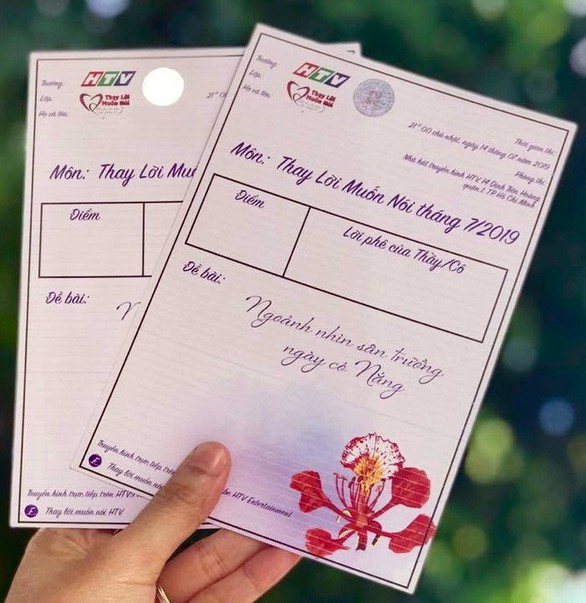 Trường:
Lớp.
Họ và tên.
HTV
Thay Lời
Muốn Nói
21H 00
Môn.: Thay Lời Mu
Điểm
Đề bài.:
N
Truyền hình trực tiếp trên HTV
Thay lời muốn nói HTV
Trường:
Lớp.
Họ và tên.
HTV
Thay Lời
Muốn Nói
Thời gian thi:
21H 00 chủ nhật, ngày 14 tháng 07 năm 2019
Phòng thi:
Nhà hát truyền hình HTV 14 Đinh Tiên Hoàng
quận 1 TP Hồ Chí Minh
Môn.: Thay Lời Muốn Nói tháng 7/2019
Điểm
Lời phê của Thầy/Cô
Đề bài.:
Ngoảnh nhìn sân trường
ngày có Nắng
Truyền hình trực tiếp trên HTV
be HTV Entertainment
Thay lời muốn nói